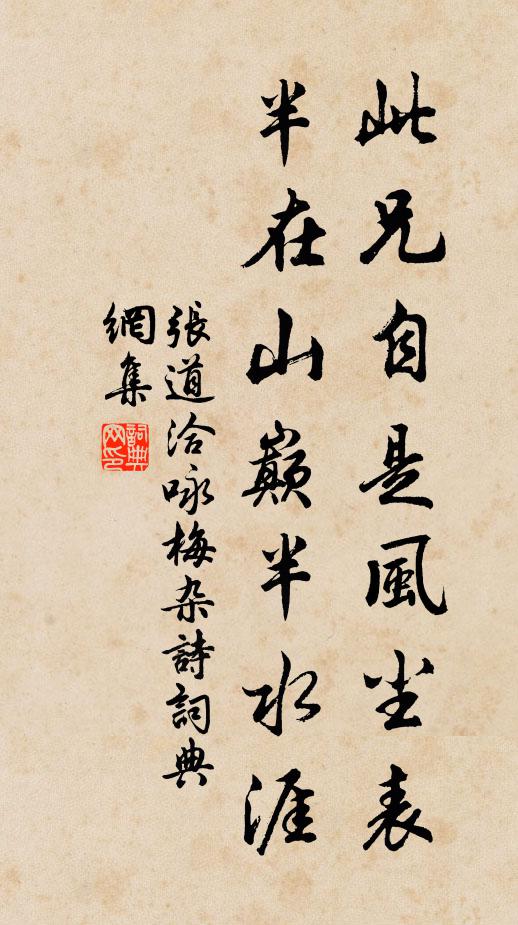 此兄自是風尘表
半在山巔半水涯
張道洽咏梅杂詩詞典
網集
詞典
网印